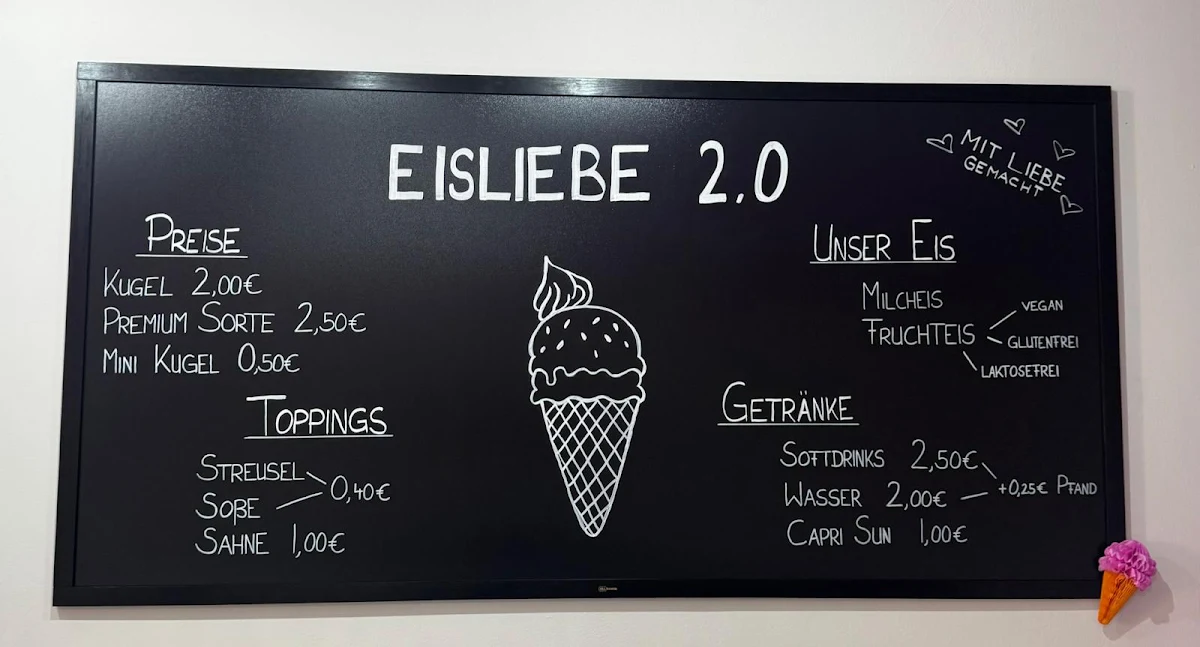 EISLIEBE 2.0
MIT LIEBE
GEMACHT
PREISE
KUGEL 2,00€
PREMIUM SORTE 2,50€
MINI KUGEL 0,50€
TOPPINGS
STREUSEL
SOßE
0,40€
SAHNE 1,00€
UNSER EIS
MILCHEIS
FRUCHTEIS
VEGAN
GLUTENFREI
LAKTOSEFREI
GETRÄNKE
SOFTDRINKS 2,50€
WASSER 2,00€
+0,25€ PFAND
CAPRI SUN 1,00€